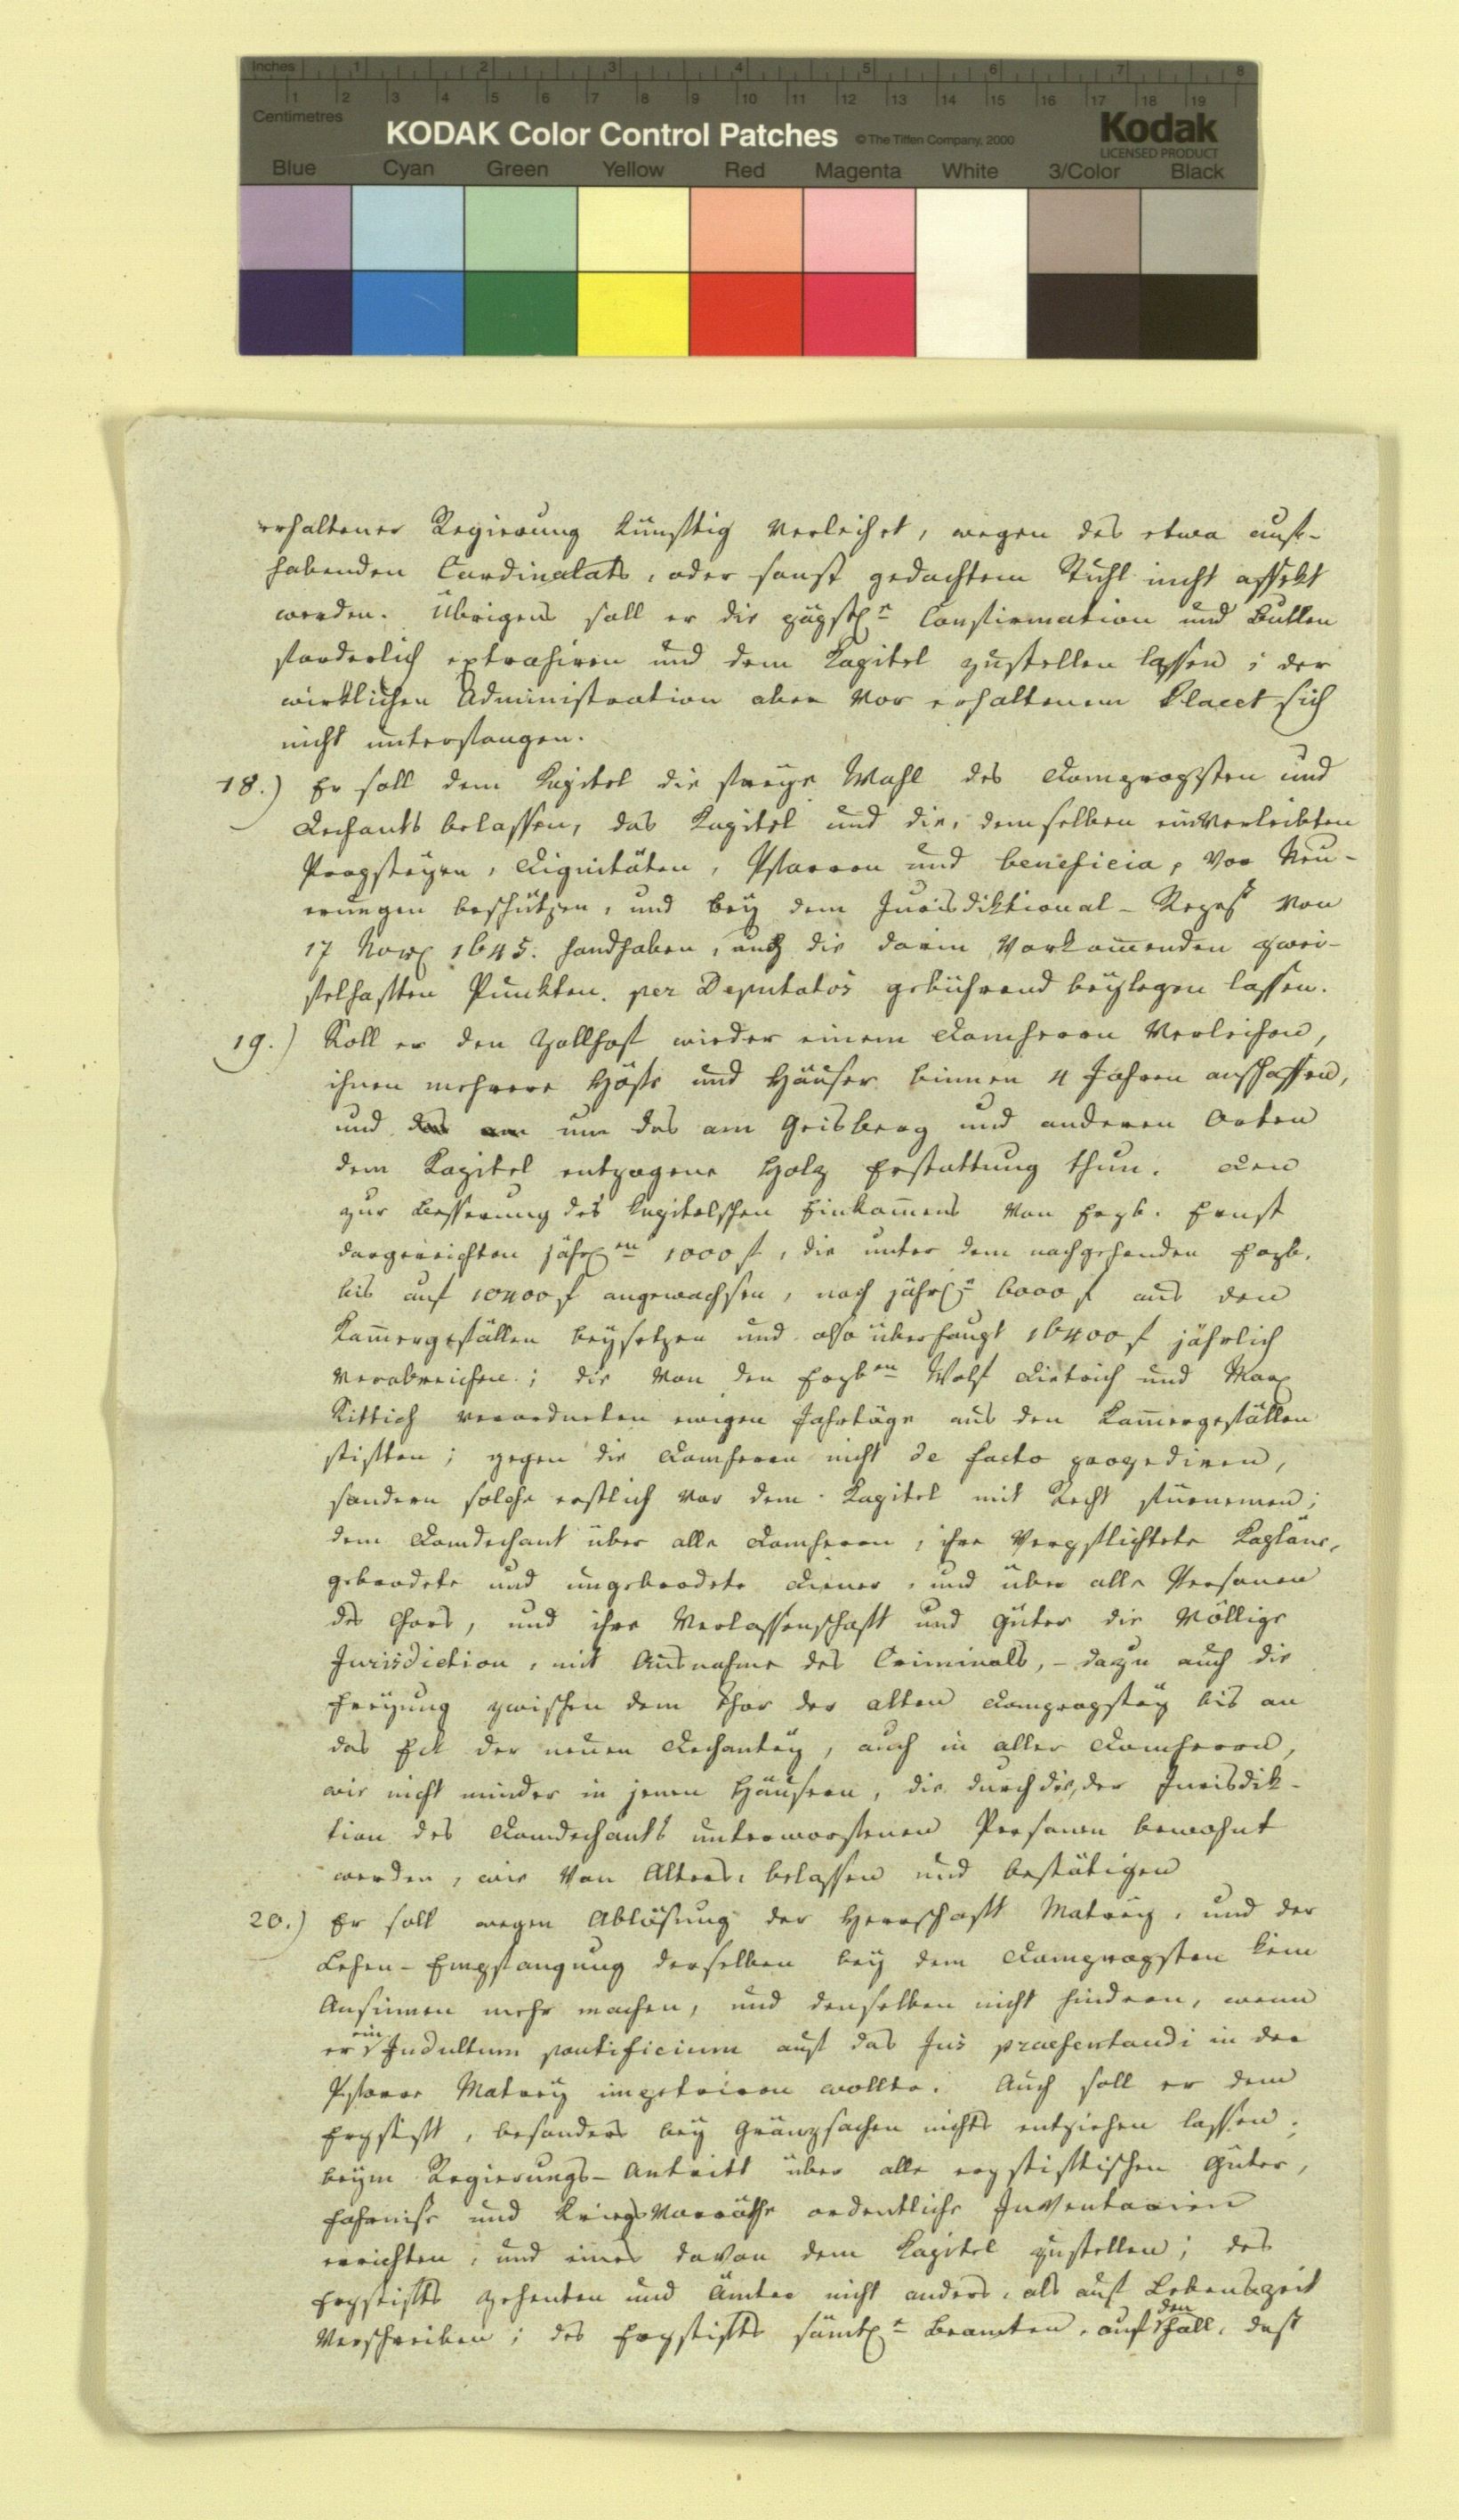 Inches 1 2 3 4 5 6 7 8
1 2 3 4 5 6 7 8 9 10 11 12 13 14 15 16 17 18 19
Centimetres
KODAK Color Control Patches © The Tiffen Company, 2000 Kodak
LICENSED PRODUCT
Blue Cyan Green Yellow Red Magenta White 3/Color Black
erhaltener Regierung künftig verleihet, wegen des etwa auf-
habenden Cardinalats, oder sonst gedachtem Stuhl nicht affekt
werden. Übrigens soll er die päpstl.e Confirmation und Bullen
forderlich extrahiren und dem Kapitel zustellen lassen; der
wirklichen Administration aber vor erhaltenem Placet sich
nicht unterfangen.
18.) Er soll dem Kapitel die freye Wahl des Domprobsten und
Dechants belassen, das Kapitel und die, demselben einverleibten
Propsteyen, Dignitäten, Pfarren und beneficia, vor Neu-
erungen beschützen, und bey dem Jurisdiktional-Rezeß von
17 Nov. 1645. handhaben, auch die darin vorkommenden zwei-
felhaften Punkten. per Deputatos gebührend beylegen lassen.
19.) Soll er den Zollhof wieder einem Domherrn verleihen,
ihnen mehrere Höfe und Häuser binnen 4 Jahren anschaffen,
und das am um das am Geisberg und anderen Orten
dem Kapitel entzogene Holz Erstattung thun. Den
zur Besserung des Kapitelschen Einkommens von Erzb. Ernst
dargereichten jährl.en 1000 f, die unter dem nachgehenden Erzb.
bis auf 10400 f angewachsen, noch jährl.e 6000 f aus den
Kammergefällen beysetzen und also überhaupt 16400 f jährlich
verabreichen; die von den Erzb.en Wolf Dietrich und Marx
Sittich verordneten ewigen Jahrtäge aus den Kammergefällen
stiften; gegen die Domherrn nicht de facto prozediren,
sondern solche erstlich vor dem Kapitel mit Recht fürnemen;
dem Domdechant über alle Domherrn, ihre verpflichtete Kapläne,
gebrodete und ungebrodete Diener, und über alle Personen
des Chors, und ihre Verlassenschaft und Güter die völlige
Jurisdiction, mit Ausnahme des Criminals, - dazu auch die
Freyung zwischen dem Thor der alten Dompropstey bis an
das Eck der neuen Dechantey, auch in aller Domherrn,
wie nicht minder in jenen Häusern, die durch die, der Jurisdik-
tion des Domdechants unterworfenen Personen bewohnt
werden, wie von Alters, belassen und bestätigen
20.) Er soll wegen Ablösung der Herrschaft Matrey, und der
Lehen-Empfangung derselben bey dem Dompropsten kein
Ansinnen mehr machen, und denselben nicht hindern, wenn
er ein Indultum pontificium auf das Jus praesentandi in der
Pfarre Matrey impetriren wollte. Auch soll er dem
Erzstift, besonders bey Gränzsachen nichts entziehen lassen;
beym Regierungs-Antritt über alle erzstiftischen Güter,
Fahrniße und Kriegs Vorräthe ordentliche Inventarien
errichten, und eines davon dem Kapitel zustellen; des
Erzstifts Zehenten und Ämter nicht anders, als auf Lebenszeit
verschreiben; des Erzstifts sämtl.e Beamten, auf den Fall, daß